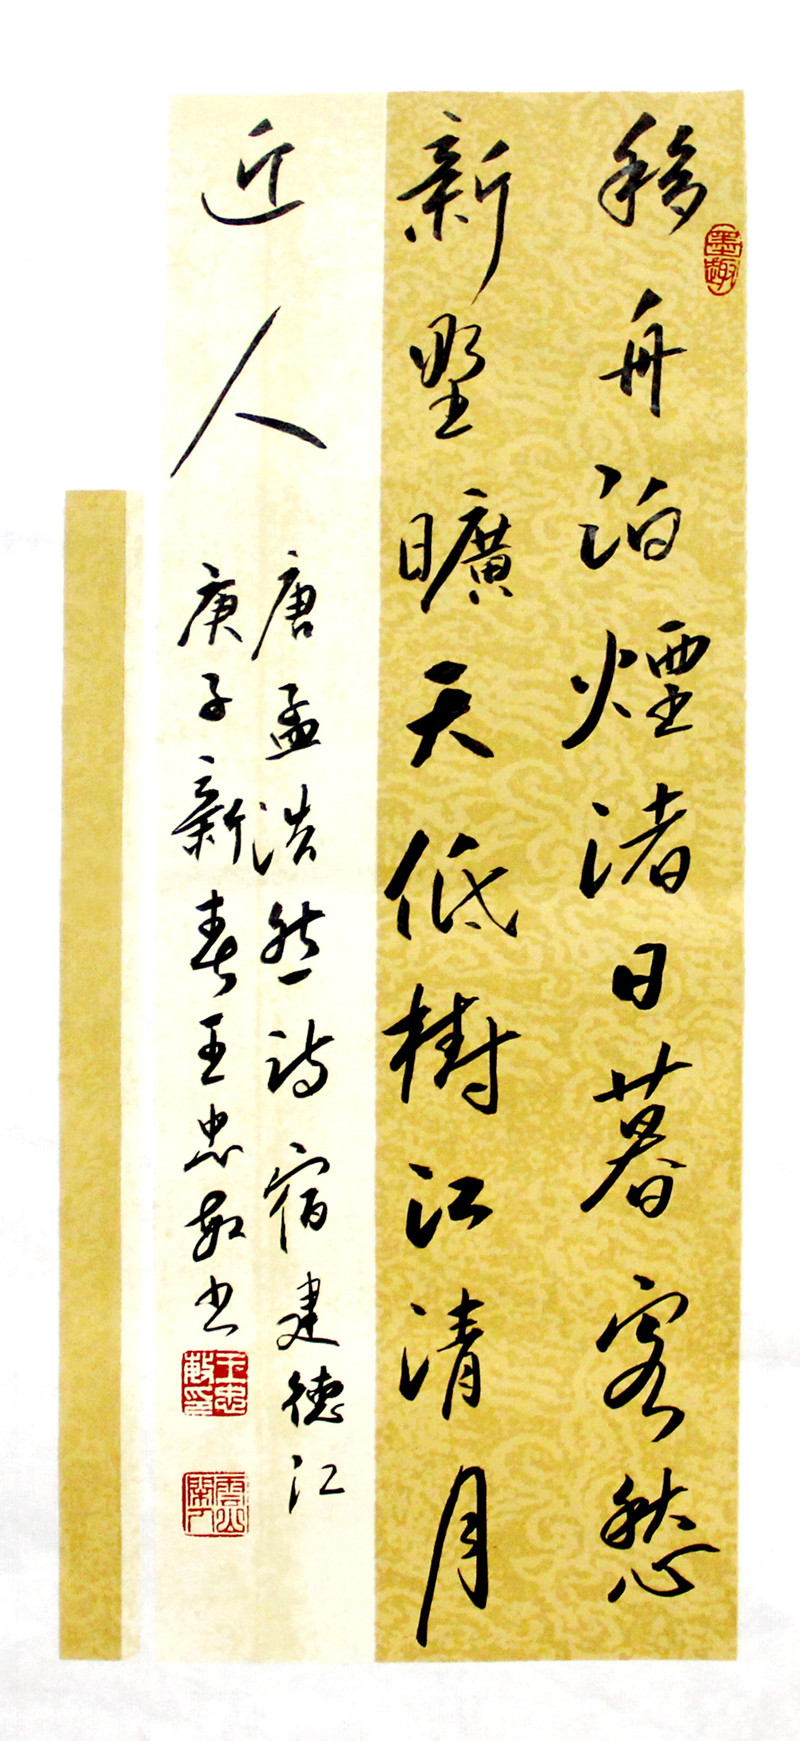 移舟泊煙渚日暮客愁
新野曠天低樹江清月
近人
唐孟浩然詩宿建德江
庚子新春王忠敏书
墨趣
王忠敏印